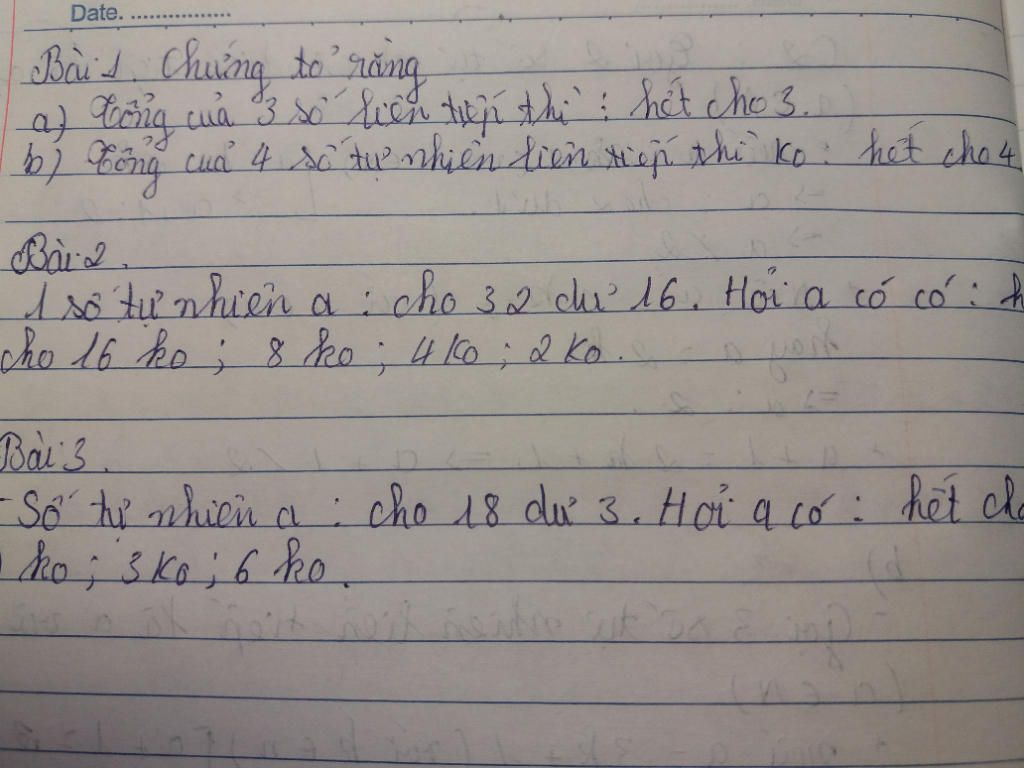 Date. ................
Bài 1. Chứng tỏ rằng
a) Tổng của 3 số liên tiếp thì : hết cho 3.
b) Tổng của 4 số tự nhiên liên tiếp thì ko : hết cho 4
Bài 2.
1 số tự nhiên a : cho 32 dư 16. Hỏi a có có :
cho 16 ko ; 8 ko ; 4 ko ; 2 ko.
Bài 3.
- Số tự nhiên a : cho 18 dư 3. Hỏi a có : hết cho
ko ; 3 ko ; 6 ko.